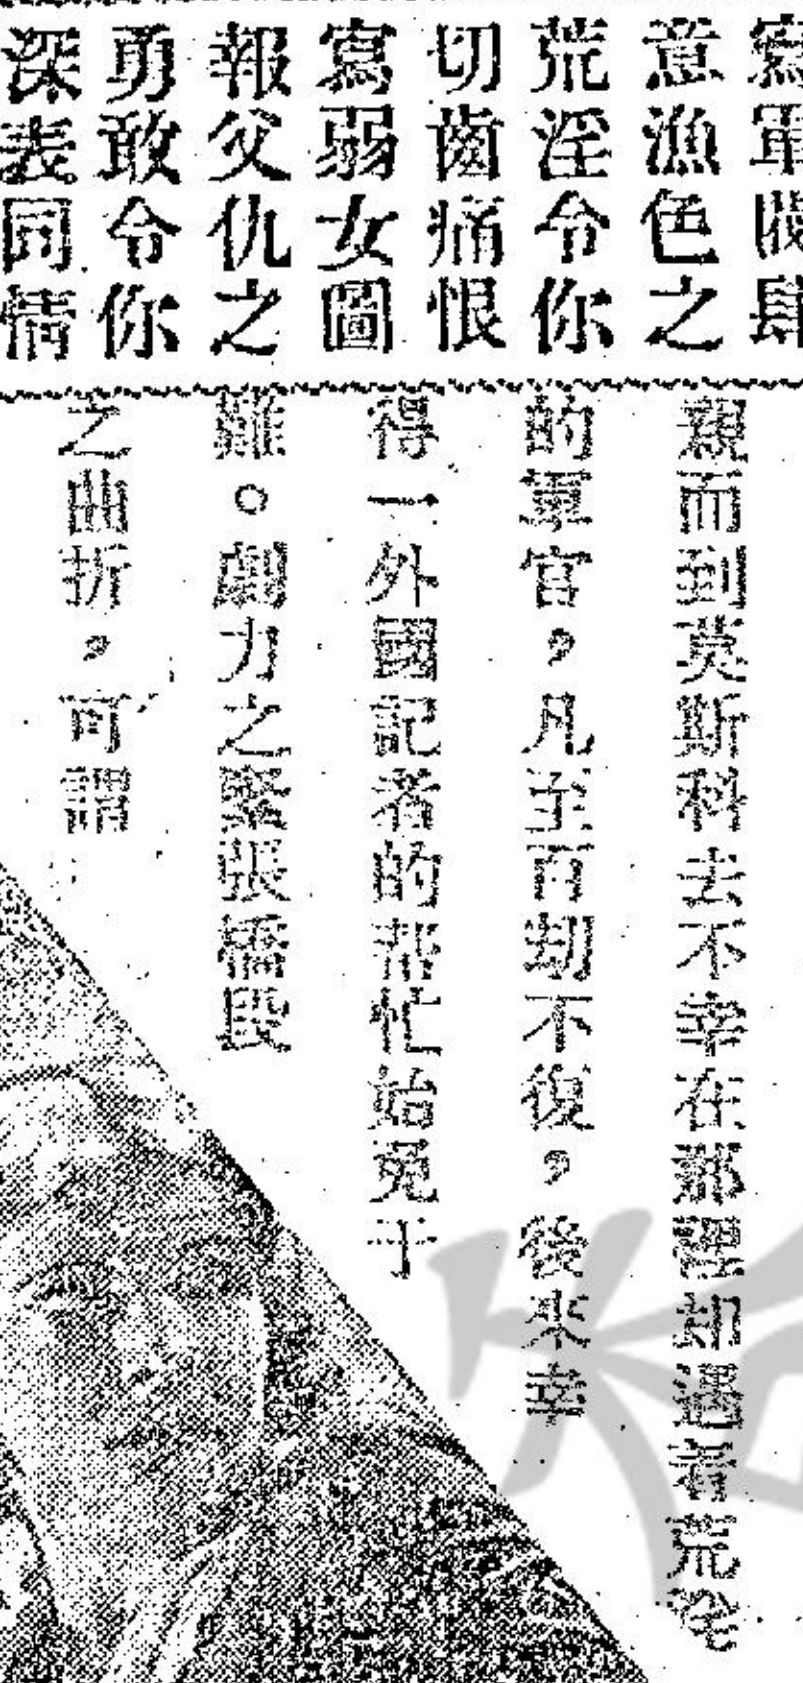 寫軍閥肆
意漁色之
荒淫令你
切齒痛恨
寫弱女圖
報父仇之
勇敢令你
深表同情
親而到莫斯科去不幸在那裡却遇着荒淫
的軍官，凡至百刧不復，後來幸
得一外國記者的帮忙始免于
難。劇力之緊張橋段
之曲折，可謂